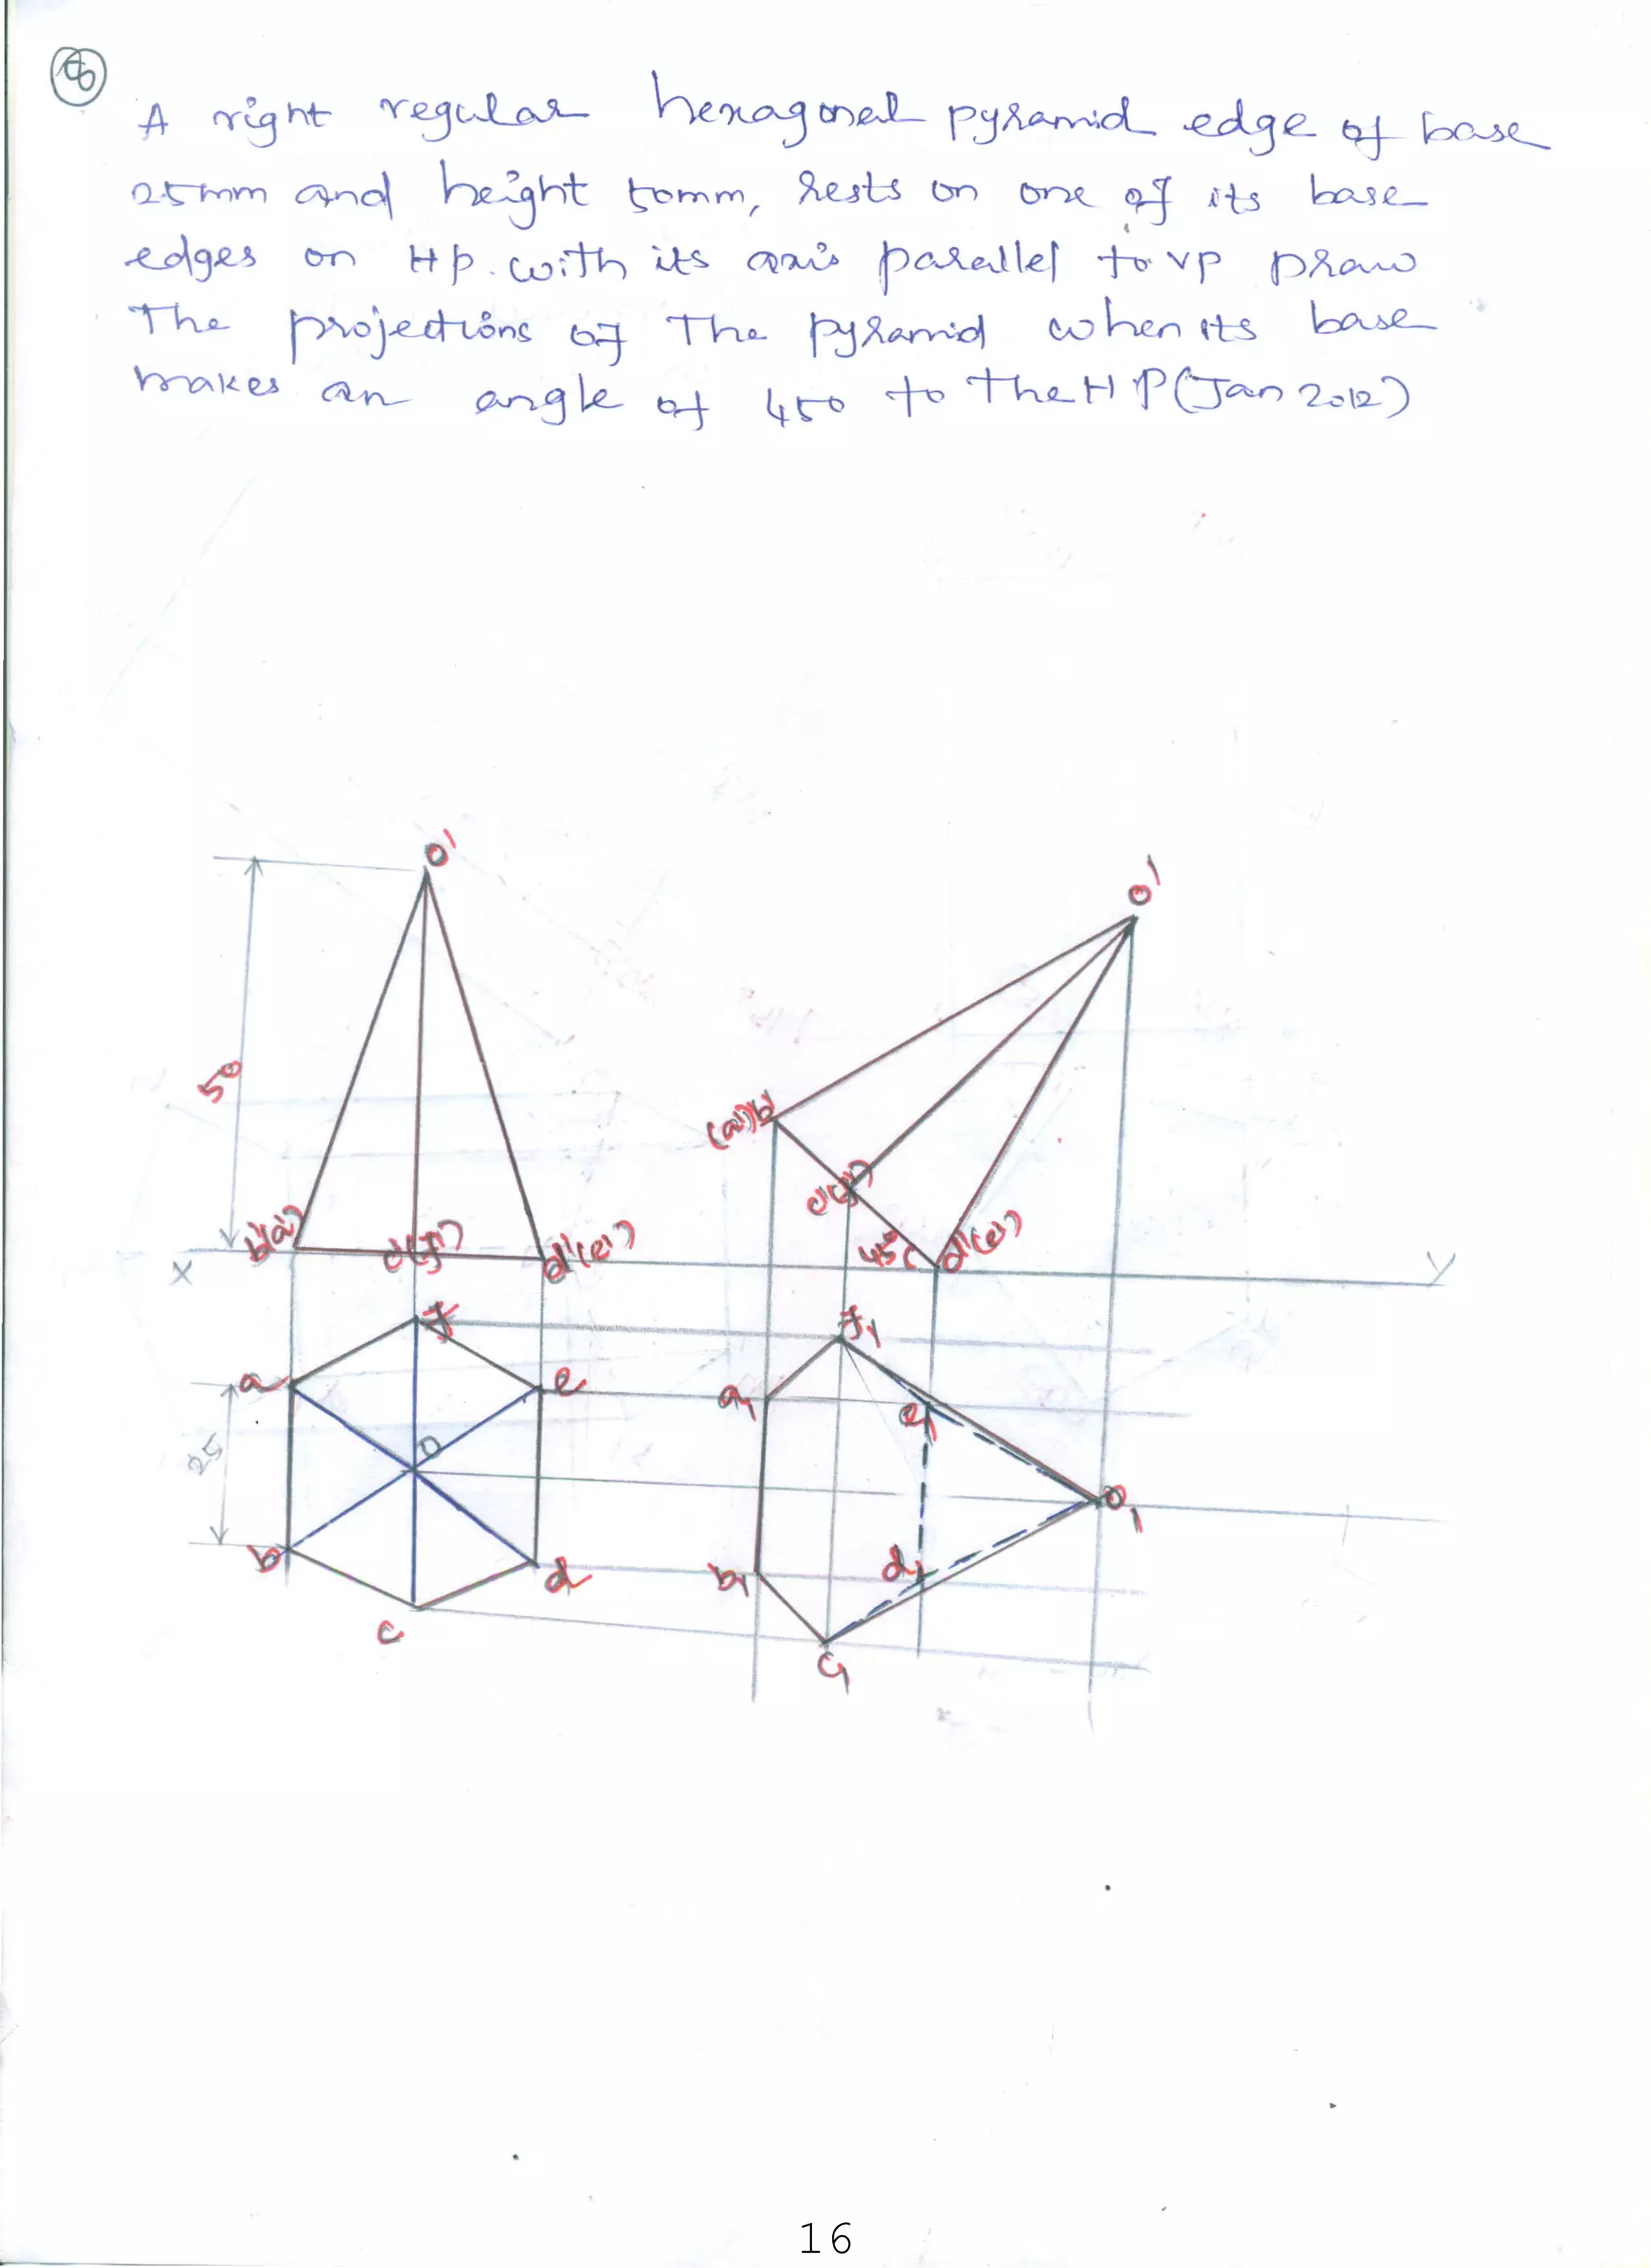 A right regular hexagonal pyramid edge of base
25mm and height 50mm, rests on one of its base
edges on HP. with its axis parallel to VP Draw
The projections of The pyramid when its base
makes an angle of 450 to the HP (Jan 2012)
O'
O'
50
(a')b'
c'(f')
b'(a')
c'(f')
d'(e')
45°
d'(e')
X
Y
f
f1
a
e
a1
e1
25
O
O1
b
d
b1
d1
c
c1
16